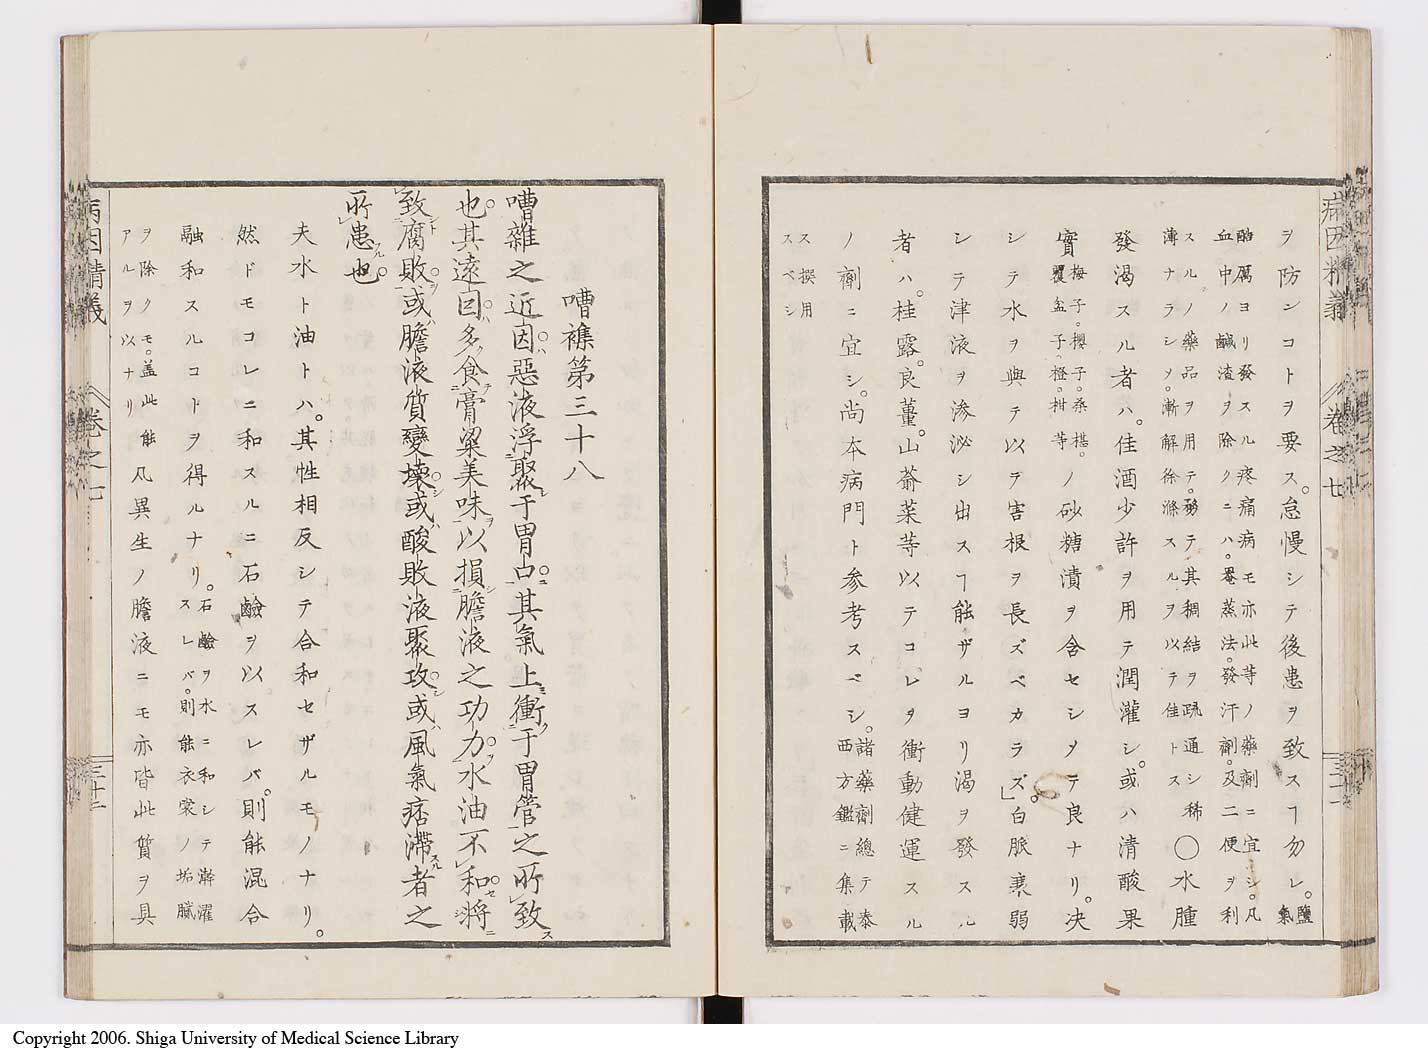 病因精義 卷之七 三十一
ヲ防ンコトヲ要ス。怠慢シテ後患ヲ致スヿ勿レ。鹽氣
酷厲ヨリ發スル疼痛病モ亦此等ノ藥劑ニ宜シ。凡
血中ノ鹹渣ヲ除クニハ。罨蒸法。發汗劑。及二便ヲ利
スルノ藥品ヲ用テ。務テ其稠結ヲ疏通シ稀
薄ナラシメ。漸解徐滌スルヲ以テ佳トス
〇水腫
發渴スル者ハ。佳酒少許ヲ用テ潤灌シ。或ハ清酸果
實梅子。櫻子。桑椹。
覆盆子。橙。柑等ノ砂糖漬ヲ含セシメテ良ナリ。决
シテ水ヲ與テ以テ害根ヲ長ズベカラズ。」白脈衰弱
シテ津液ヲ滲泌シ出スヿ能ザルヨリ渴ヲ發スル
者ハ。桂露。良薑。山葵菜等以テコレヲ衝動健運スル
ノ劑ニ宜シ。尚本病門ト參考スベシ。諸藥劑總テ泰
西方鑑ニ集載
ス撰用
スベシ
嘈襍第三十八
嘈雜之近因。惡液浮聚于胃口。其氣上衝于胃管之所致
也。其遠因。多食膏粱美味。以損膽液之功力。水油不和。將
致腐敗。或膽液質變壞。或酸敗液聚攻。或風氣痞滯者之
所患也。
夫水ト油トハ。其性相反シテ合和セザルモノナリ。
然ドモコレニ和スルニ石鹼ヲ以スレバ。則能混合
融和スルコトヲ得ルナリ。石鹼ヲ水ニ和シテ澣濯
スレバ。則能衣裳ノ垢膩
ヲ除クモ。蓋此能
アルヲ以ナリ
凡異生ノ膽液ニモ亦皆此質ヲ具
病因精義 卷之七 三十二
Copyright 2006. Shiga University of Medical Science Library